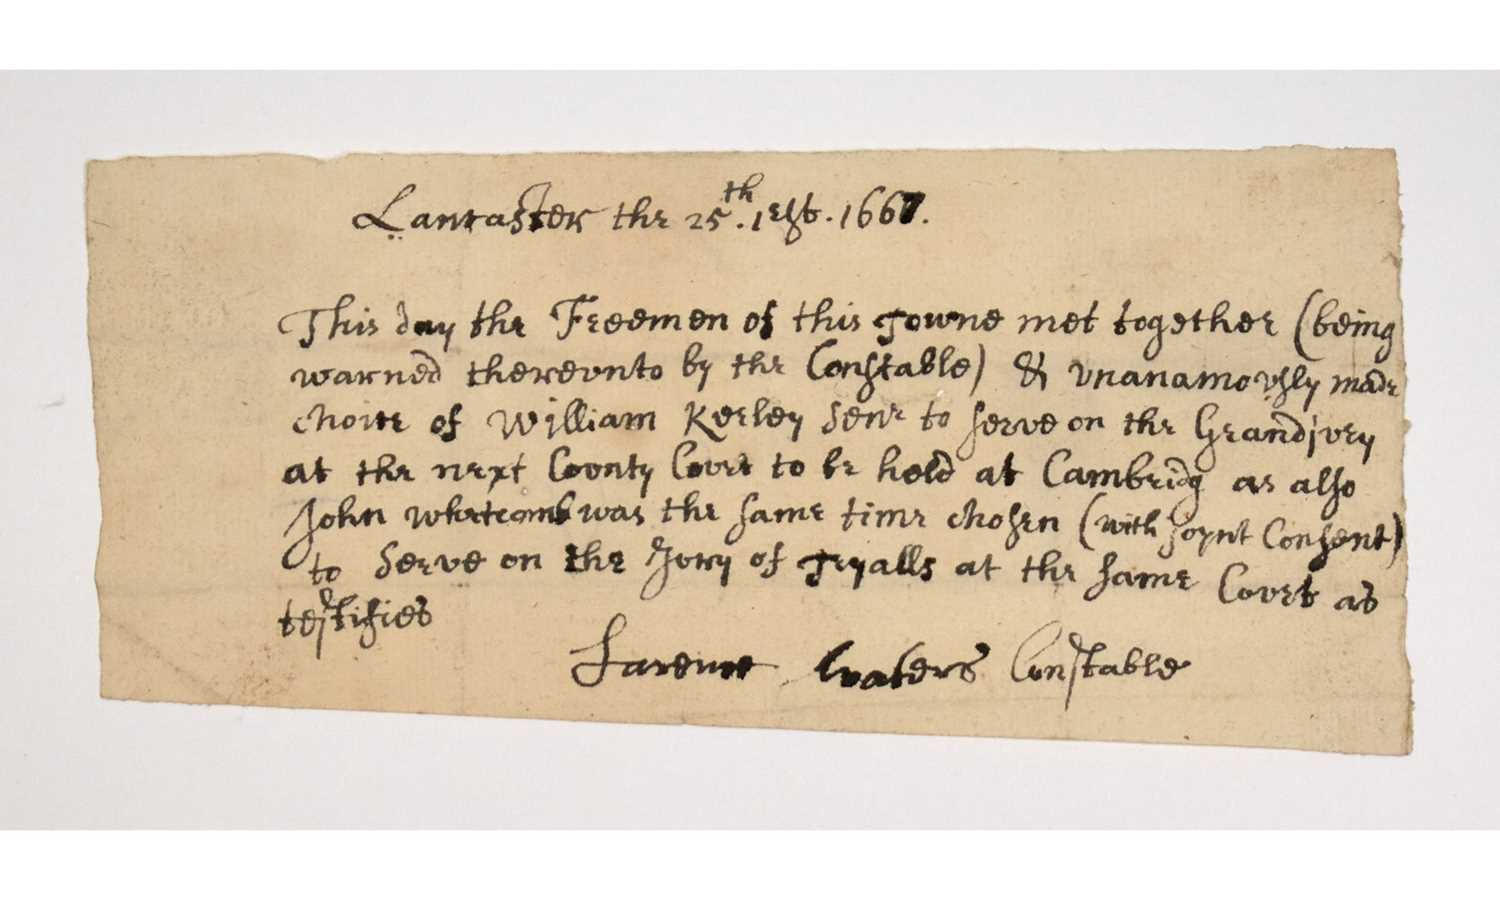 Lancaster the 25th. 1667.
This day the Freemen of this Towne met together (being
warned therevnto by the Constable) & vnanamovsly made
choice of William Kerley Senr to serve on the Grandjvry
at the next Covnty Covrt to be held at Cambridg as also
John Whetcomb was the same time chosen (with joynt Consent)
to serve on the Jvry of Tryalls at the same Covrt as
testifies
Larence Waters Constable